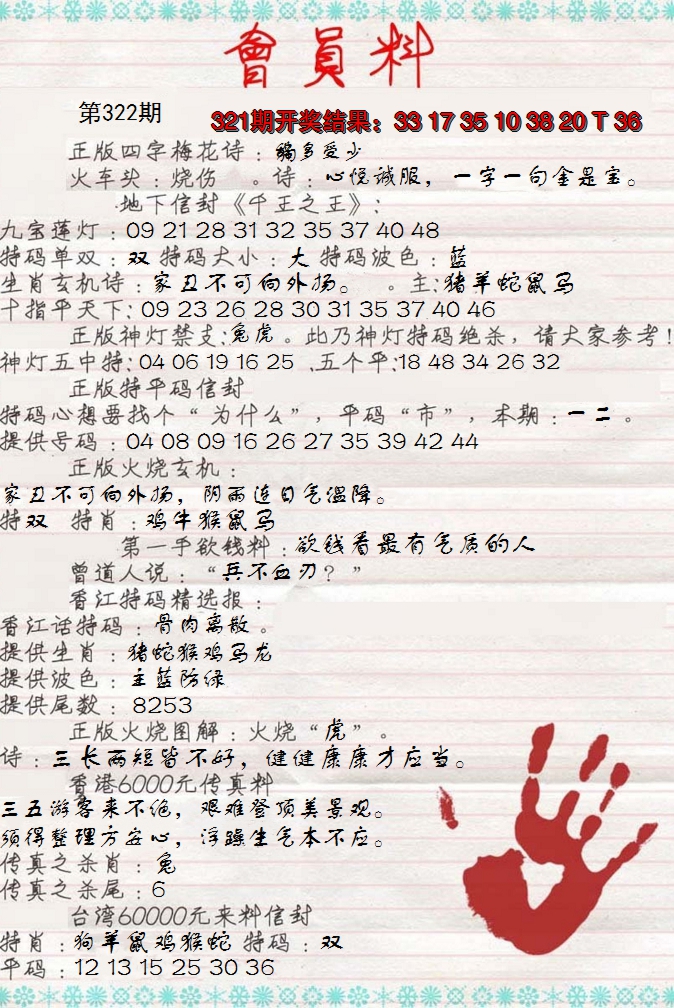 會員料
第322期
321期开奖结果：33 17 35 10 38 20 T 36
正版四字梅花诗：鹅多爱少
火车头：烧伤 。诗：心悦诚服，一字一句金是宝。
地下信封《千王之王》：
九宝莲灯：09 21 28 31 32 35 37 40 48
特码单双：双 特码大小：大 特码波色：蓝
生肖玄机诗：家丑不可向外扬。 。主：猪羊蛇鼠马
十指平天下：09 23 26 28 30 31 35 37 40 46
正版神灯禁支：兔虎。此乃神灯特码绝杀，请大家参考！
神灯五中特：04 06 19 16 25 、五个平：18 48 34 26 32
正版特平码信封
特码心想要找个“为什么”，平码“市”，本期：一二。
提供号码：04 08 09 16 26 27 35 39 42 44
正版火烧玄机：
家丑不可向外扬，阴雨连日气温降。
特双 特肖：鸡牛猴鼠马
第一手欲钱料：欲钱看最有气质的人
曾道人说：“兵不血刃？”
香江特码精选报：
香江话特码：骨肉离散。
提供生肖：猪蛇猴鸡马龙
提供波色：主蓝防绿
提供尾数：8253
正版火烧图解：火烧“虎”。
诗：三长两短皆不好，健健康康才应当。
香港6000元传真料
三五游客来不绝，艰难登顶美景观。
须得整理方安心，浮躁生气本不应。
传真之杀肖：兔
传真之杀尾：6
台湾60000元来料信封
特肖：狗羊鼠鸡猴蛇 特码：双
平码：12 13 15 25 30 36